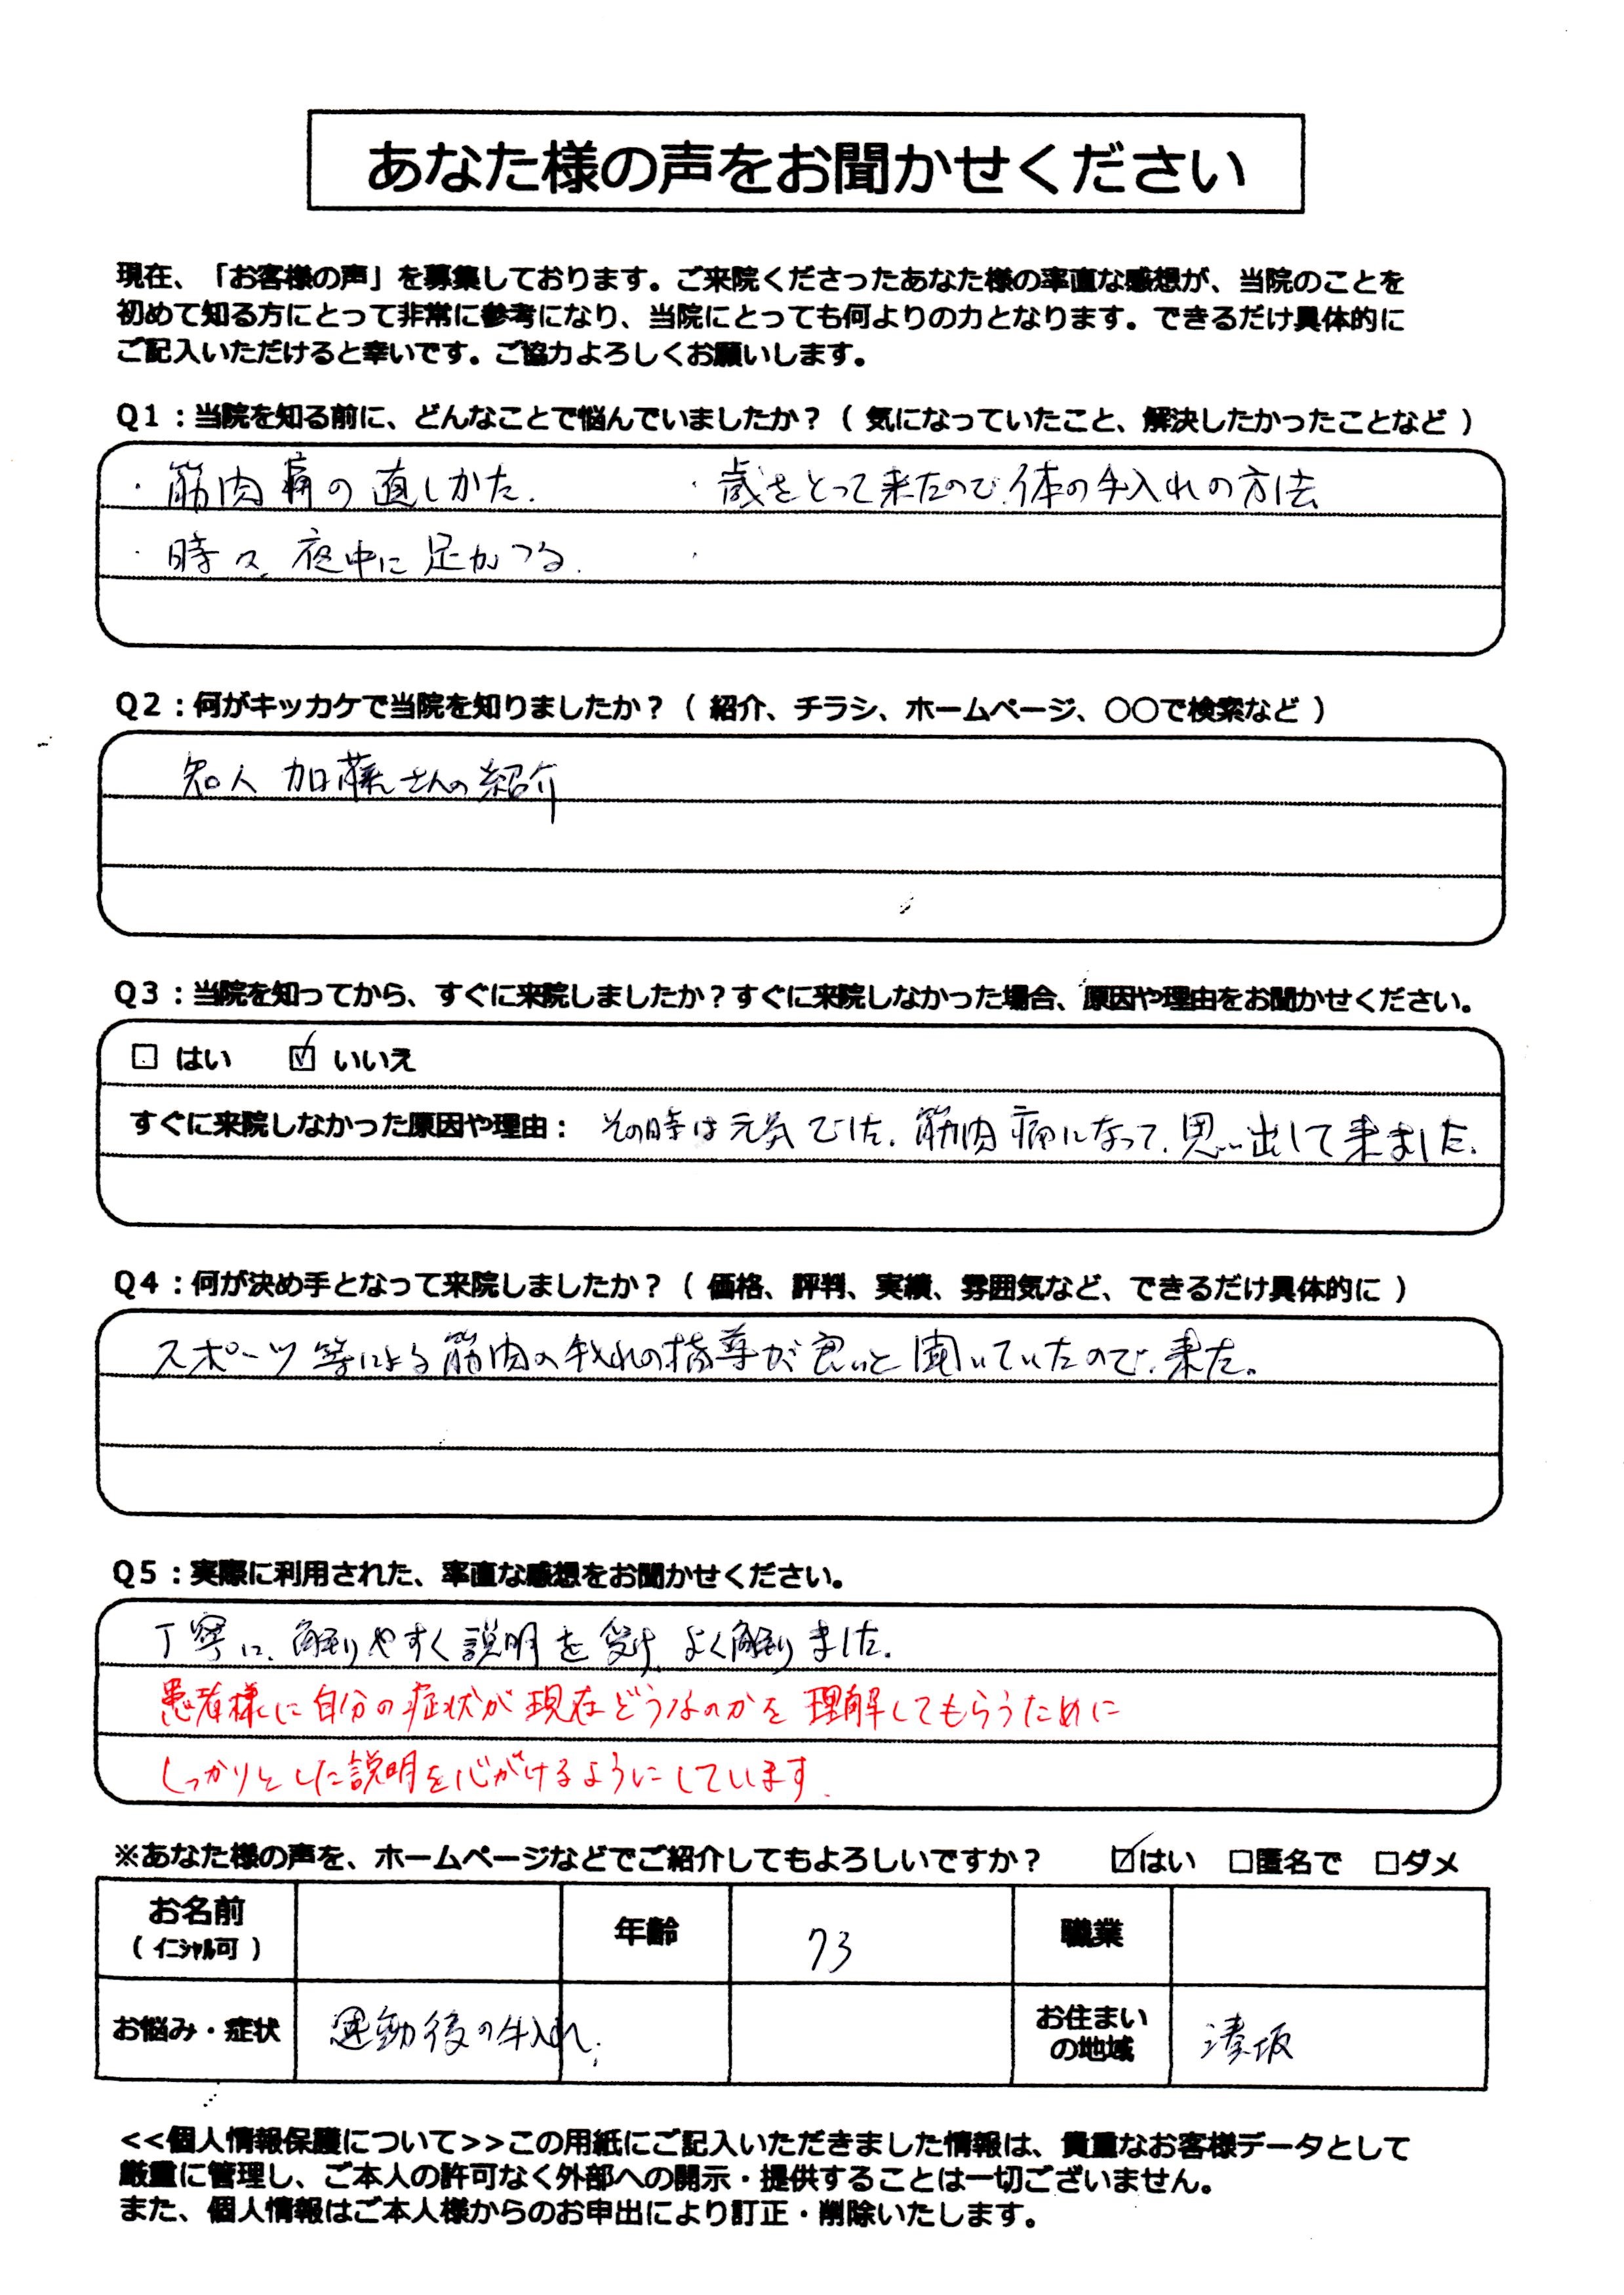 あなた様の声をお聞かせください
現在、「お客様の声」を募集しております。ご来院くださったあなた様の率直な感想が、当院のことを
初めて知る方にとって非常に参考になり、当院にとっても何よりの力となります。できるだけ具体的に
ご記入いただけると幸いです。ご協力よろしくお願いします。
Q1：当院を知る前に、どんなことで悩んでいましたか？（ 気になっていたこと、解決したかったことなど ）
・筋肉痛の直しかた. ・歳をとって来たので、体の手入れの方法
・時々、夜中に足がつる. ・
Q2：何がキッカケで当院を知りましたか？（ 紹介、チラシ、ホームページ、○○で検索など ）
知人 加藤さんの紹介
Q3：当院を知ってから、すぐに来院しましたか？すぐに来院しなかった場合、原因や理由をお聞かせください。
□ はい ☑ いいえ
すぐに来院しなかった原因や理由： その時は元気でした. 筋肉痛になって、思い出して来ました.
Q4：何が決め手となって来院しましたか？（ 価格、評判、実績、雰囲気など、できるだけ具体的に ）
スポーツ等による筋肉の手入れの指導が良いと聞いていたので、来た。
Q5：実際に利用された、率直な感想をお聞かせください。
丁寧に、解りやすく説明を受け、よく解りました.
患者様に自分の症状が現在どうなのかを理解してもらうために
しっかりとした説明を心がけるようにしています.
※あなた様の声を、ホームページなどでご紹介してもよろしいですか？ ☑はい □匿名で □ダメ
お名前 年齢 73 職業
（ ｲﾆｼｬﾙ可 ）
お悩み・症状 運動後の手入れ. お住まいの地域
<<個人情報保護について>>この用紙にご記入いただきました情報は、貴重なお客様データとして
厳重に管理し、ご本人の許可なく外部への開示・提供することは一切ございません。
また、個人情報はご本人様からのお申出により訂正・削除いたします。